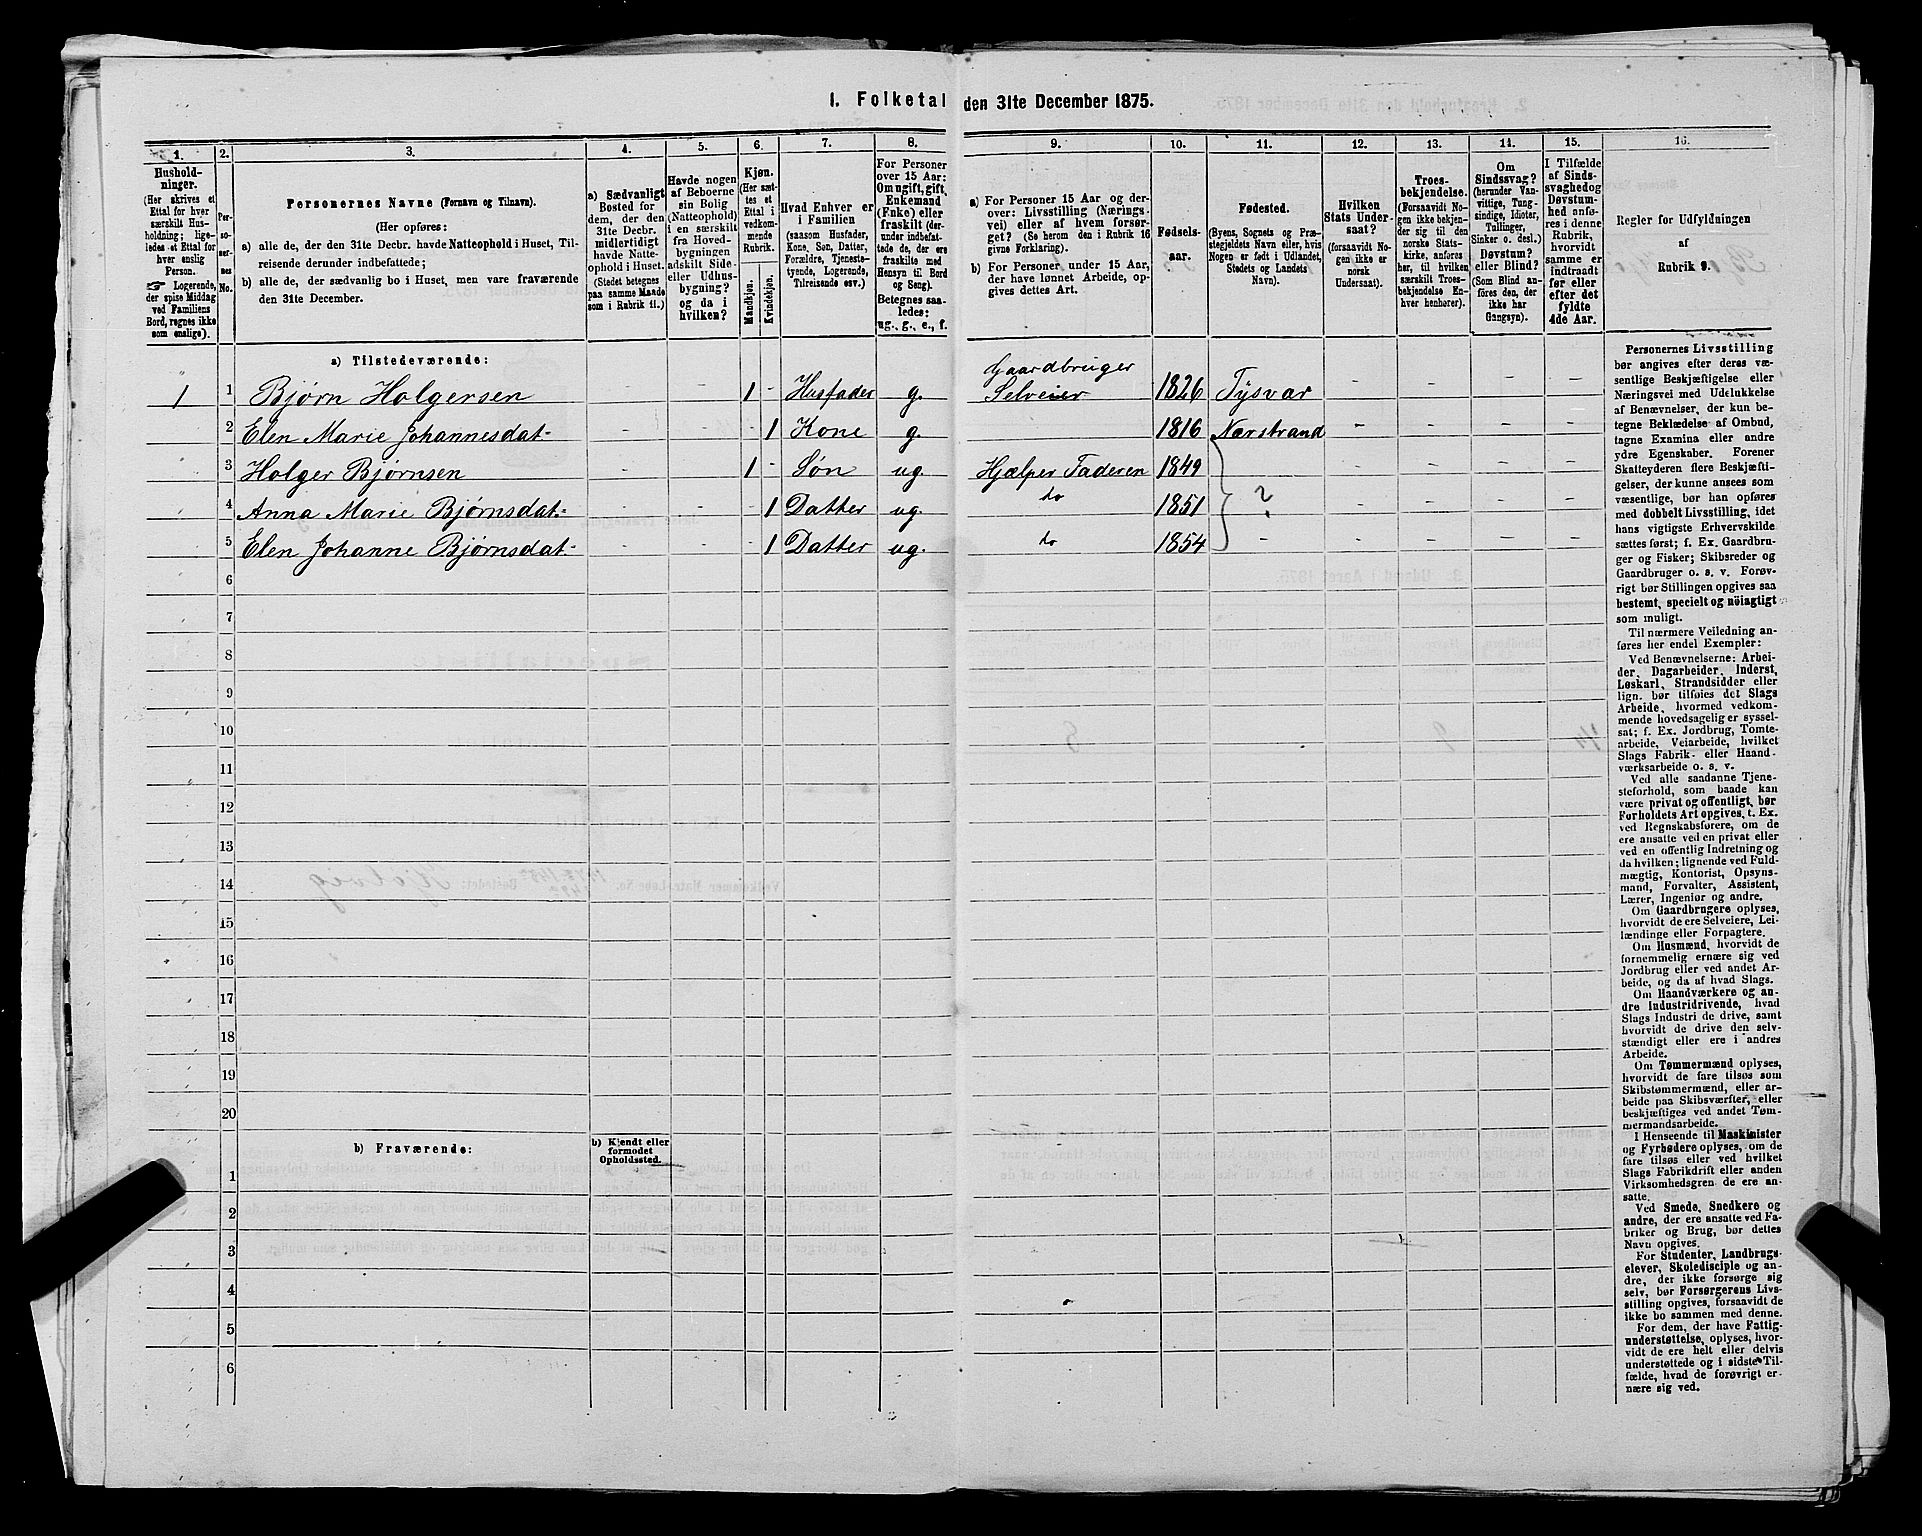 1. Folketal den 31te December 1875.
1. 2. 3. 4. 5. 6. 7. 8. 9. 10. 11. 12. 13. 14. 15. 16.
Hushold-
ninger.
(Her skrives et
Ettal for hver
særskilt Hus-
holdning; lige-
ledes et Ettal for
hver enslig
Person.
☞ Logerende,
der spise Middag
ved Familiens
Bord, regnes ikke
som enslige).
Per-
so-
ner-
nes
No.
Personernes Navne (Fornavn og Tilnavn).
(Her opføres:
a) alle de, der den 31te Decbr. havde Natteophold i Huset, Til-
reisende derunder indbefattede;
b) alle de, der sædvanlig bo i Huset, men vare fraværende
den 31te December.
a) Sædvanligt
Bosted for
dem, der den
31te Decbr.
midlertidigt
havde Natte-
ophold i Huset.
(Stedet betegnes
paa samme Maade
som i Rubrik 11.)
Havde nogen
af Beboerne
sin Bolig
(Natteophold)
i en særskilt
fra Hoved-
bygningen
adskilt Side-
eller Udhus-
bygning?
og da i
hvilken?
Kjøn.
(Her sæt-
tes et
Ettal i
vedkom-
mende
Rubrik.
Mandkjøn.
Kvindekjøn.
Hvad Enhver er
i Familien
(saasom Husfader,
Kone, Søn, Datter,
Forældre, Tjeneste-
tyende, Logerende,
Tilreisende osv.)
For Personer
over 15 Aar:
Om ugift, gift,
Enkemand
(Enke) eller
fraskilt (der-
under indbefat-
tede de, der ere
fraskilte med
Hensyn til Bord
og Seng).
Betegnes saa-
ledes:
ug., g., e., f.
a) For Personer 15 Aar og der-
over: Livsstilling (Nærings-
vei) eller af hvem forsør-
get? (Se herom den i Rubrik 16
givne Forklaring).
b) For Personer under 15 Aar,
der have lønnet Arbeide, op-
gives dettes Art.
Fødsels-
aar.
Fødested.
(Byens, Sognets og Præ-
stegjeldets Navn eller, hvis
Nogen er født i Udlandet,
Stedets og Landets
Navn).
Hvilken
Stats Under-
saat?
(forsaavidt No-
gen ikke er
norsk
Undersaat).
Troes-
bekjendelse.
(Forsaavidt No-
gen ikke bekjen-
der sig til den
norske Stats-
kirke, anføres
her, til hvilken
særskilt Troes-
bekjendelse En-
hver henhører).
Om
Sindssvag?
(herunder Van-
vittige, Tung-
sindige, Idioter,
Tullinger,
Sinker o. desl.)
Døvstum?
eller Blind?
(Som Blind an-
føres den, der
ikke har
Gangsyn).
I Tilfælde
af Sinds-
svaghed og
Døvstum-
hed anfø-
res i denne
Rubrik,
hvorvidt
samme er
indtraadt
før eller
efter det
fyldte
4de Aar.
Regler for Udfyldningen
af
Rubrik 9.
a) Tilstedeværende:
Gaardbruger
1 1 Bjørn Holgersen - - 1 - Husfader g. Selveier 1826 Tysvær - - - -
2 Elen Marie Johannesdat- - - - 1 Kone g. 1816 Nærstrand - - - -
3 Holger Bjørnsen - - 1 - Søn ug. Hjælper Faderen 1849 - - - -
4 Anna Marie Bjørnsdat:- - - - 1 Datter ug. do 1851 ? - - - -
5 Elen Johanne Bjørnsdat- - - - 1 Datter ug. do 1854 - - - - -
6
7
8
9
10
11
12
13
14
15
16
17
18
19
20
b) Fraværende:
b) Kjendt eller
formodet
Opholdssted.
1
2
3
4
5
6
Personernes Livsstilling
bør angives efter deres væ-
sentlige Beskjæftigelse eller
Næringsvei med Udelukkelse
af Benævnelser, der kun be-
tegne Beklædelse af Ombud,
tagne Examina eller andre
ydre Egenskaber. Forener
Skatteyderen flere Beskjæfti-
gelser, der kunne ansees som
væsentlige, bør han opføres
med dobbelt Livsstilling, idet
hans vigtigste Erhvervskilde
sættes først; f. Ex. Gaardbru-
ger og Fisker; Skibsreder og
Gaardbruger o. s. v. Forøv-
rigt bør Stillingen opgives saa
bestemt, specielt og nöiagtigt
som muligt.
Til nærmere Veiledning an-
føres her endel Exempler:
Ved Benævnelserne: Arbei-
der, Dagarbeider, Inderst,
Løskarl, Strandsidder eller
lign. bør tilføies det Slags
Arbeide, hvormed vedkom-
mende hovedsagelig er syssel-
sat; f. Ex. Jordbrug, Tomte-
arbeide, Veiarbeide, hvilket
Slags Fabrik- eller Haand-
værksarbeide o. s. v.
Ved alle saadanne Tjene-
steforhold, som baade kan
være privat og offentligt, bør
Forholdets Art opgives, t. Ex.
ved Regnskabsførere, om de
ere ansatte ved en privat eller
ved en offentlig Indretning og
da hvilken; lignende ved Fuld-
mægtig, Kontorist, Opsyns-
mand, Forvalter, Assistent,
Lærer, Ingeniør og andre.
Om Gaardbrugere oplyses,
hvorvidt de ere Selveiere, Lei-
lændinge eller Forpagtere.
Om Husmænd, hvorvidt de
fornemmelig ernære sig ved
Jordbrug eller ved andet Ar-
beide, og da af hvad Slags.
Om Haandværkere og an-
dre Industridrivende, hvad
Slags Industri de drive, samt
hvorvidt de drive den selv-
stændigt eller ere i andres
Arbeide.
Om Tømmermænd oplyses,
hvorvidt de fare tilsøs som
Skibstømmermænd, eller ar-
beide paa Skibsværfter, eller
beskjæftiges ved andet Tøm-
mermandsarbeide.
I Henseende til Maskinister
og Fyrbødere oplyses, om de
fare tilsøs eller ved hvilket
Slags Fabrikdrift eller anden
Virksomhedsgren de ere an-
satte.
Ved Smede, Snedkere og
andre, der ere ansatte ved Fa-
briker og Brug, bør dettes
Navn opgives.
For Studenter, Landbrugs-
elever, Skoledisciple og an-
dre, der ikke forsørge sig
selv, bør Forsørgerens Livs-
stilling opgives, forsaavidt de
ikke bo sammen med denne.
For dem, der have Fattig-
understøttelse, oplyses, hvor-
vidt de ere helt eller delvis
understøttede og i sidste Til-
fælde, hvad de forøvrigt er-
nære sig ved.